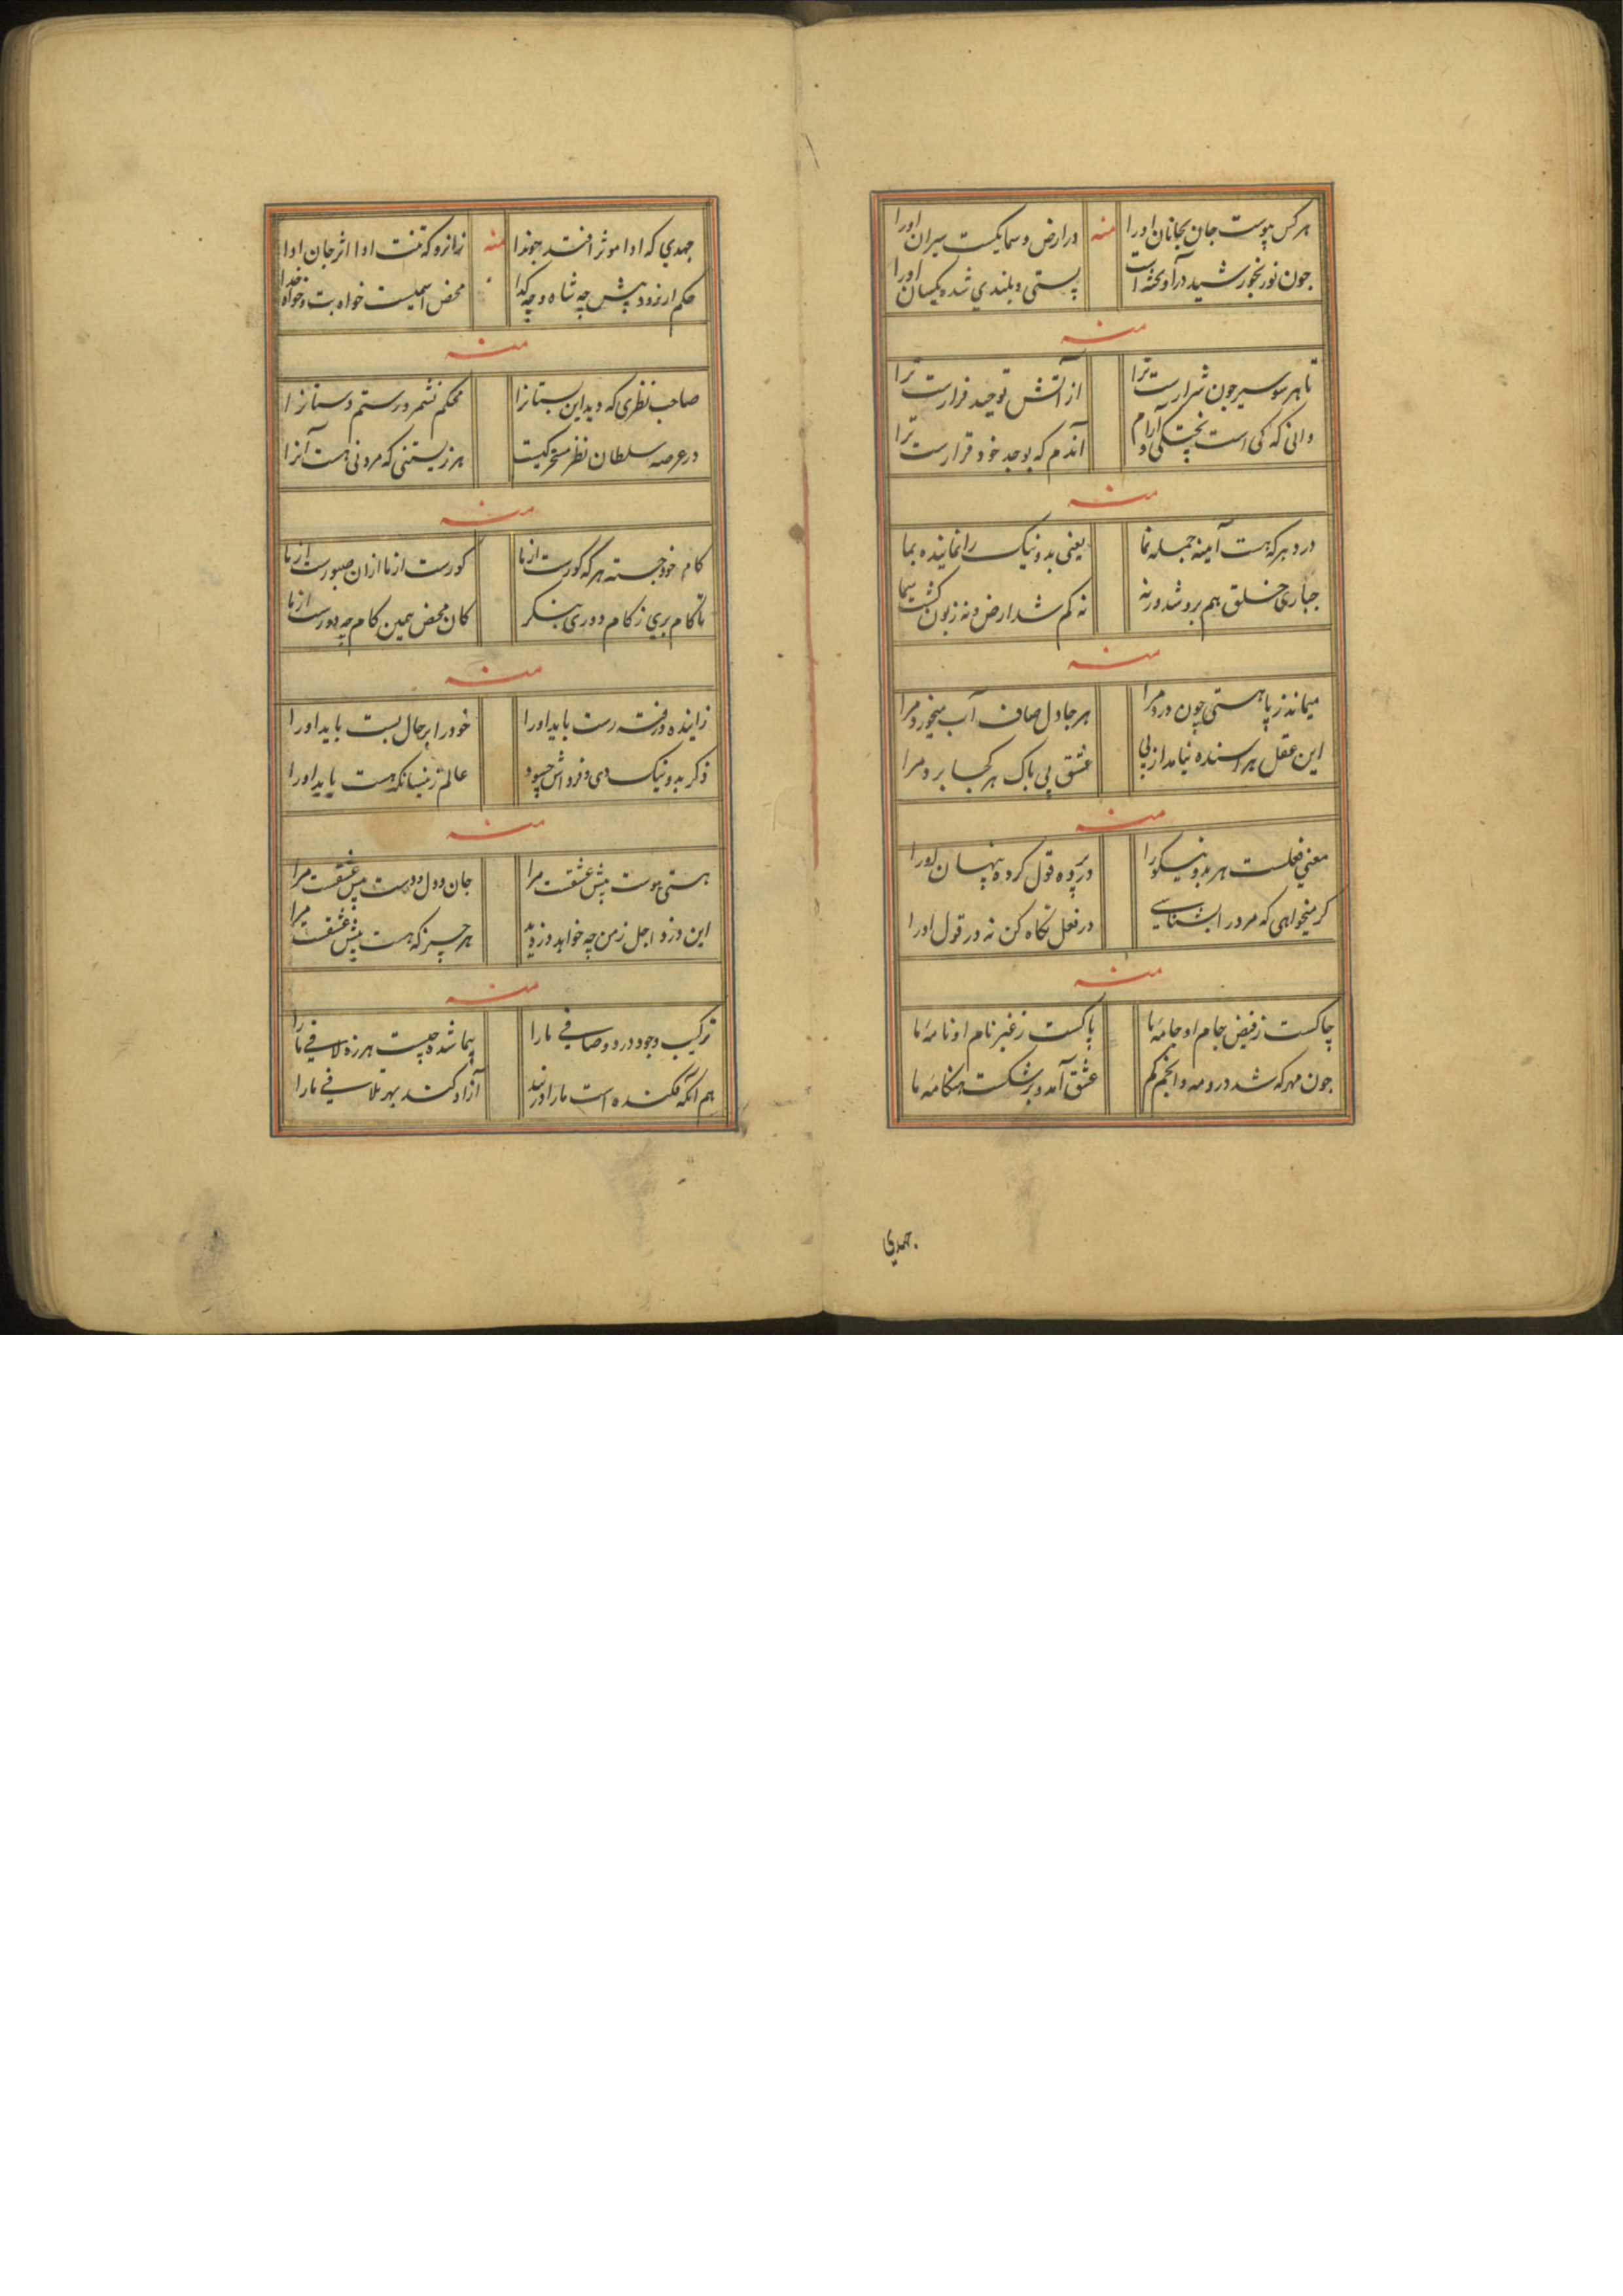 هرکس پیوست جان بجانان اورا منه در ارض و سما یکیست سیران اورا
چون نور بخورشید درآویخته است پستی و بلندی شده یکسان اورا
منه
تا هر سو سیر چون شرارست ترا از آتش توحید فرارست ترا
دانی که کی است پختگی و آرام آندم که بوجد خود قرارست ترا
منه
در دهر که هست آینه جمله نما یعنی بد و نیک را نماینده بما
جباری خلق هم برو شد ورنه نه کم شد ارض و نه زبون گشت سما
منه
میماند ز پا هستی چون درد مرا هر جا دل صاف آب میخورد مرا
این عقل هراسنده نیامد از پی عشق بی باک هر کجا برد مرا
منه
معنی فعلست هر بد و نیکو را در پرده قول کرده پنهان اورا
گر میخواهی که مرد را بشناسی در فعل نگاه کن نه در قول اورا
منه
چاکست ز فیض جام او جامهٔ ما پاکست ز غیر نام او نامهٔ ما
چون مهر که شد درو مه و انجم گم عشق آمد و بر شکست هنگامهٔ ما
جهدی
جهدی که ادا موثر افتد چو ندا منه زانرو که تنت ادا اثر جان ادا
حکم ار نرود پیش چه شاه و چه گدا محض اسمیست خواه بت خواه خدا
منه
صاحب نظری که دید این بستانرا محکم نشمرد رستم دستانرا
در عرصه سلطان نظر مسخرگیست هر زیستنی که مردنی هست آنرا
منه
کام خود جسته هر که کورست از ما کورست از ما ازان صبورست از ما
تا کام بری ز کام دوری بنگر کان محض همین کام چه دورست از ما
منه
زاینده و رفته رست باید اورا خود را بر حال بست باید اورا
ذکر بد و نیک دی و فرداش چسود عالم زینسانکه هست باید اورا
منه
هستی پوست پیش عشقت مرا جان و دل و دوست پیش عشقت مرا
این دزد اجل ز من چه خواهد دزدید هر چیز که هست پیش عشقت مرا
منه
ترکیب وجود درد و صافی مارا پیما شده چیست هرزه لافی مارا
هم آنکه فکنده است مارا در بند آزاد کند بهر تلافی مارا